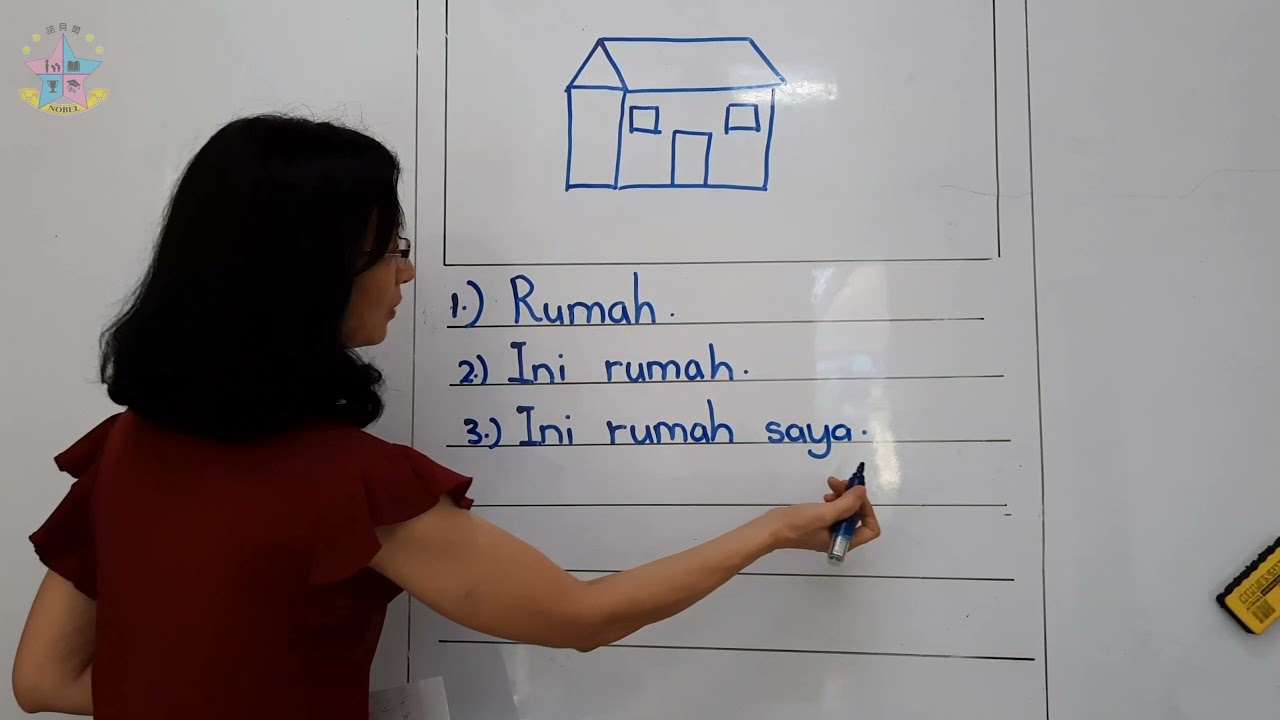 诺贝尔
NOBEL
1.) Rumah.
2.) Ini rumah.
3.) Ini rumah saya.